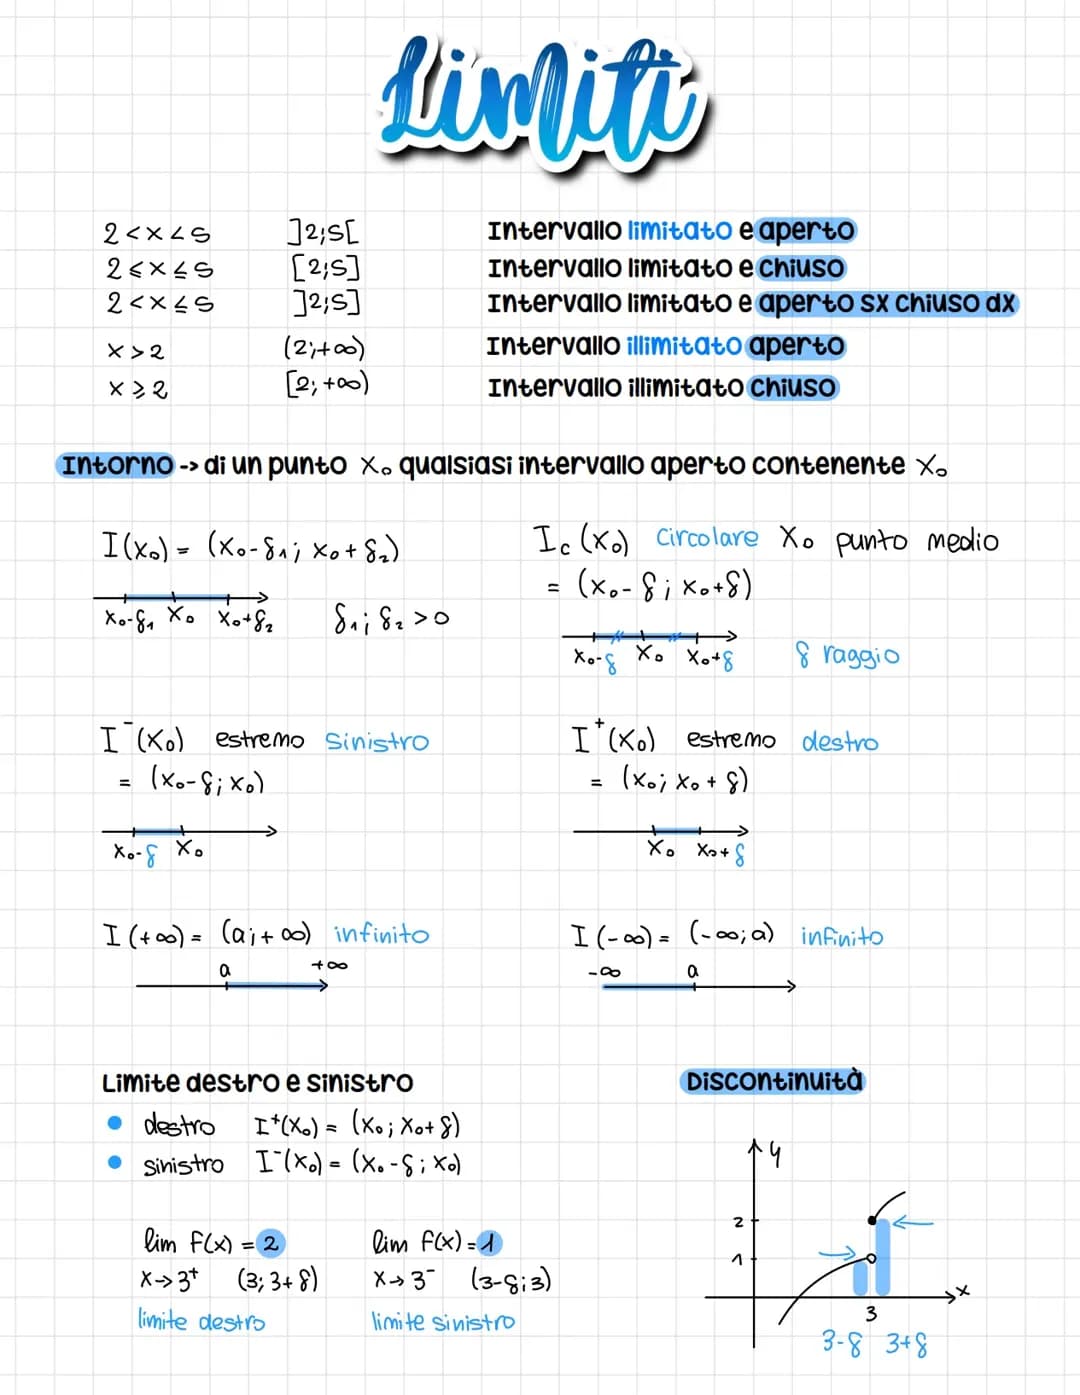 Limiti
2<x<5 ]2;5[ Intervallo limitato e aperto
2≤x≤5 [2;5] Intervallo limitato e chiuso
2<x≤5 ]2;5] Intervallo limitato e aperto sx chiuso dx
x>2 (2;+∞) Intervallo illimitato aperto
x≥2 [2;+∞) Intervallo illimitato chiuso
Intorno -> di un punto x₀ qualsiasi intervallo aperto contenente x₀
I(x₀) = (x₀-δ₁; x₀+δ₂)
x₀-δ₁ x₀ x₀+δ₂ δ₁; δ₂ >0
Ic(x₀) circolare x₀ punto medio
= (x₀-δ; x₀+δ)
x₀-δ x₀ x₀+δ δ raggio
I⁻(x₀) estremo sinistro
= (x₀-δ; x₀)
x₀-δ x₀
I⁺(x₀) estremo destro
= (x₀; x₀+δ)
x₀ x₀+δ
I(+∞) = (a;+∞) infinito
a +∞
I(-∞) = (-∞;a) infinito
-∞ a
Limite destro e sinistro
• destro I⁺(x₀) = (x₀; x₀+δ)
• sinistro I⁻(x₀) = (x₀-δ; x₀)
lim f(x) = 2
x→3⁺ (3; 3+δ)
limite destro
lim f(x) = 1
x→3⁻ (3-δ; 3)
limite sinistro
Discontinuità
y
2
1
x
3
3-δ 3+δ